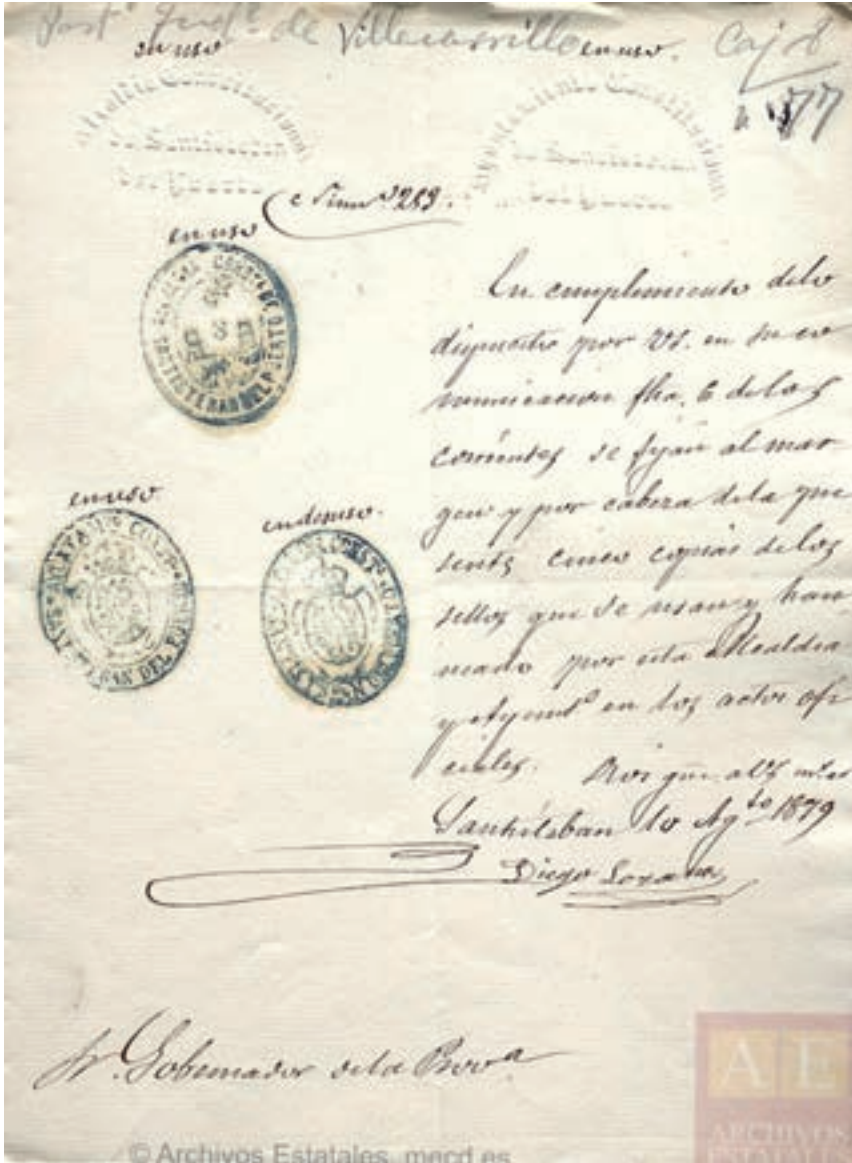 Part.º Jud.º de Villacarrillo Caj 8
en uso en uso.
77
Alcaldia Constitucional
de Santisteban
del Puerto
Ayuntamiento Constitucional
de Santisteban
del Puerto
Num.º 289.
en uso
En cumplimiento delo
dispuesto por VS. en su co
municacion fha. 6 delos
corrientes se fijan al mar-
gen y por cabeza dela pre
sente cinco copias delos
sellos que se usan y han
usado por esta Alcaldia
y Ayunt.º en los actos ofi
ciales. Dios gue. a VS m.s as
Santisteban 10 Ag.to 1879
Diego Lozano
en uso
en desuso.
Sr. Gobernador dela Prov.a
AE
ARCHIVOS
ESTATALES
© Archivos Estatales, mecd.es